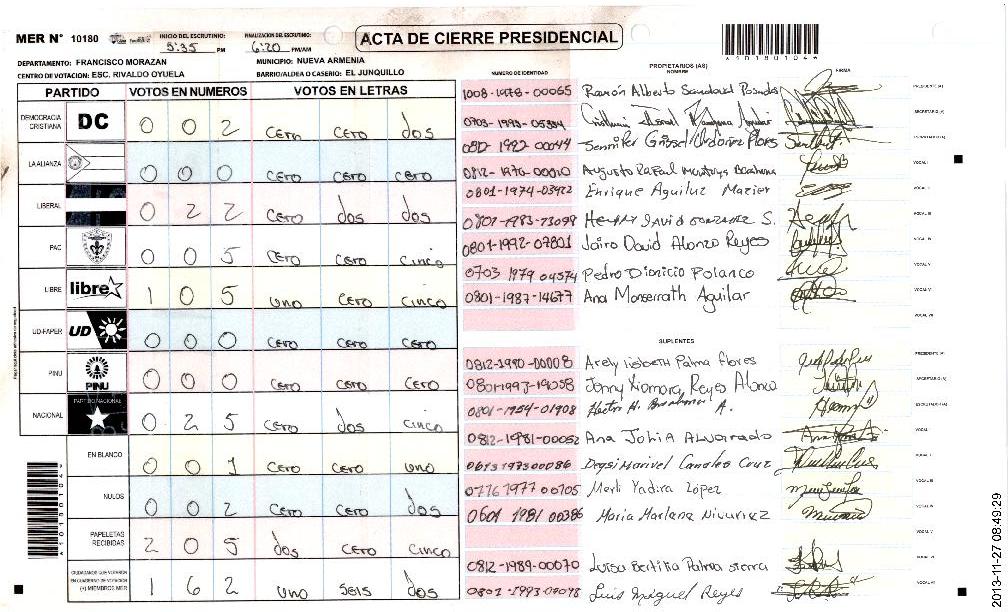 MER N° 10180
INICIO DEL ESCRUTINIO: 5:35 PM
FINALIZACION DEL ESCRUTINIO: 6:20 PM/AM
ACTA DE CIERRE PRESIDENCIAL
*10180104*
DEPARTAMENTO: FRANCISCO MORAZAN
MUNICIPIO: NUEVA ARMENIA
CENTRO DE VOTACION: ESC. RIVALDO OYUELA
BARRIO/ALDEA O CASERIO: EL JUNQUILLO
PARTIDO VOTOS EN NUMEROS VOTOS EN LETRAS
DEMOCRACIA CRISTIANA DC 0 0 2 cero cero dos
LA ALIANZA 0 0 0 cero cero cero
LIBERAL 0 2 2 cero dos dos
PAC 0 0 5 cero cero cinco
LIBRE libre 1 0 5 uno cero cinco
UD-FAPER UD 0 0 0 cero cero cero
PINU PINU 0 0 0 cero cero cero
NACIONAL PARTIDO NACIONAL 0 2 5 cero dos cinco
EN BLANCO 0 0 1 cero cero uno
NULOS 0 0 2 cero cero dos
PAPELETAS RECIBIDAS 2 0 5 dos cero cinco
CIUDADANOS QUE VOTARON EN CUADERNO DE VOTACION (+) MIEMBROS MER 1 6 2 uno seis dos
*10180104*
NUMERO DE IDENTIDAD PROPIETARIOS (AS) NOMBRE FIRMA
1008-1978-00065 Ramón Alberto Sandoval PRESIDENTE (A)
0703-1993-05334 SECRETARIO (A)
0812 1992-00044 Flores
0812-1976-00010 Augusto Rafael VOCAL I
0801-1974-03922 Enrique Aguiluz Mazier VOCAL II
0801-1983-13098 Henry David Gonzalez S. VOCAL III
0801-1992-07801 Jairo David Alonzo Reyes VOCAL IV
0703 1979 04574 Pedro Dionicio Polanco VOCAL V
0801-1987-14677 Ana Monserrath Aguilar
SUPLENTES
0812-1990-00008 Arely lisbeth Palma flores PRESIDENTE (A)
0801-1993-19058 Jenny Xiomara Reyes Alonzo SECRETARIO (A)
0801-1954-01908 Hector H. A.
0812-1981-00052 Ana Johia Alvarado VOCAL I
0613197300086 Deysi Marivel Canales Cruz
0776 1977 00705 Merli Yadira López VOCAL III
0601 1981 00386 Maria Marlene VOCAL IV
0812-1989-00070 Luisa Palma sierra
0801-1993-07078 Luis Miguel Reyes
2013-11-27 08:49:29